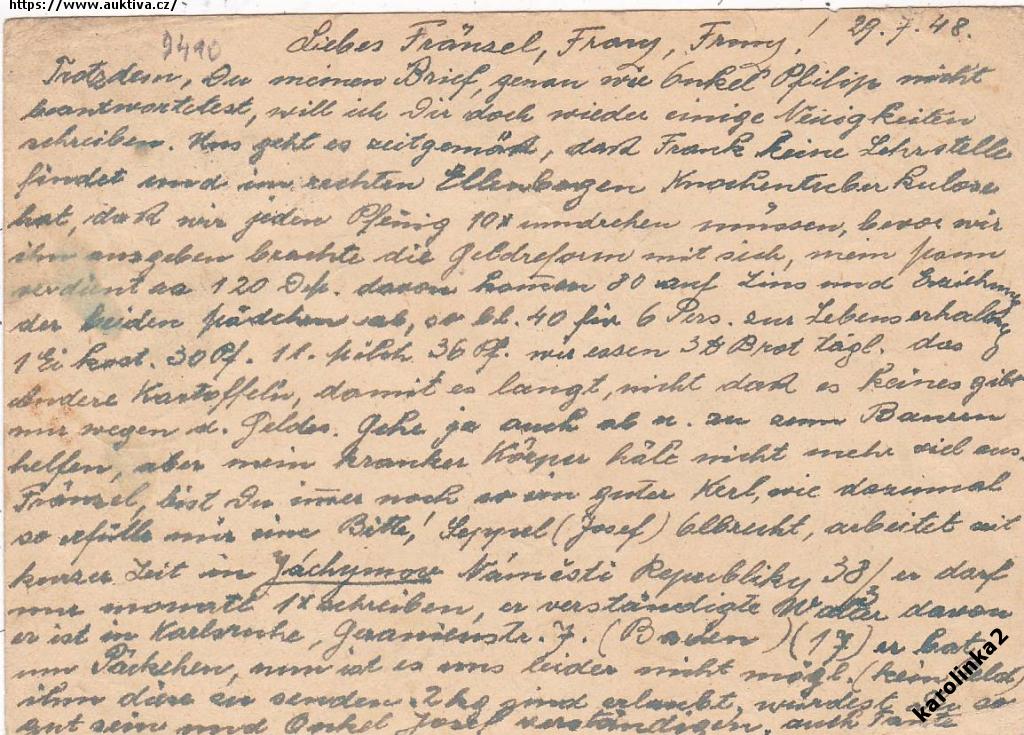 https://www.auktiva.cz/
Liebes Fränzel, Frany, Frony! 29.7.48.
9490
Trotzdem, Du meinen Brief, genau wie Onkel Pfilip nicht
beantwortetest, will ich Dir doch wieder einige Neuigkeiten
schreiben. Uns geht es zeitgemäß, daß Frank keine Lehrstelle
findet und im rechten Ellenbogen Knochentuberkulose
hat, daß wir jeden Pfenig 10x umdrehen müssen, bevor wir
ihn ausgeben brachte die Geldreform mit sich, mein Mann
verdient ca 120 Dm. davon kommen 80 auf Zins und Erziehung
der beiden Mädchen ab, so bl. 40 für 6 Pers. zur Lebenserhaltung
1 Ei kost. 30 Pf. 1 l. Milch 36 Pf. wir essen 3 Brot tägl. das
andere Kartoffeln, damit es langt, nicht daß es keines gibt
nur wegen d. Geldes. Gehe ja auch ab u. zu zum Bauern
helfen, aber mein kranker Körper hält nicht mehr viel aus.
Fränzel, bist Du immer noch so ein guter Kerl, wie dazumal
so erfülle mir eine Bitte! Seppel (Josef) Olbrecht, arbeitet seit
kurzer Zeit in Jáchymov Náměsti Republiky 38/ er darf
nur monatl 1x schreiben, er verständigte Walter davon
er ist in Karlsruhe, Geranienstr. 7. (Baden) (17) er bat
um Päckchen, nun ist es uns leider nicht mögl. (kein Geld)
ihm diese zu senden. 2 kg sind erlaubt, würdest Du so
gut sein und Onkel Josef verständigen, auch Tante
karolinka2